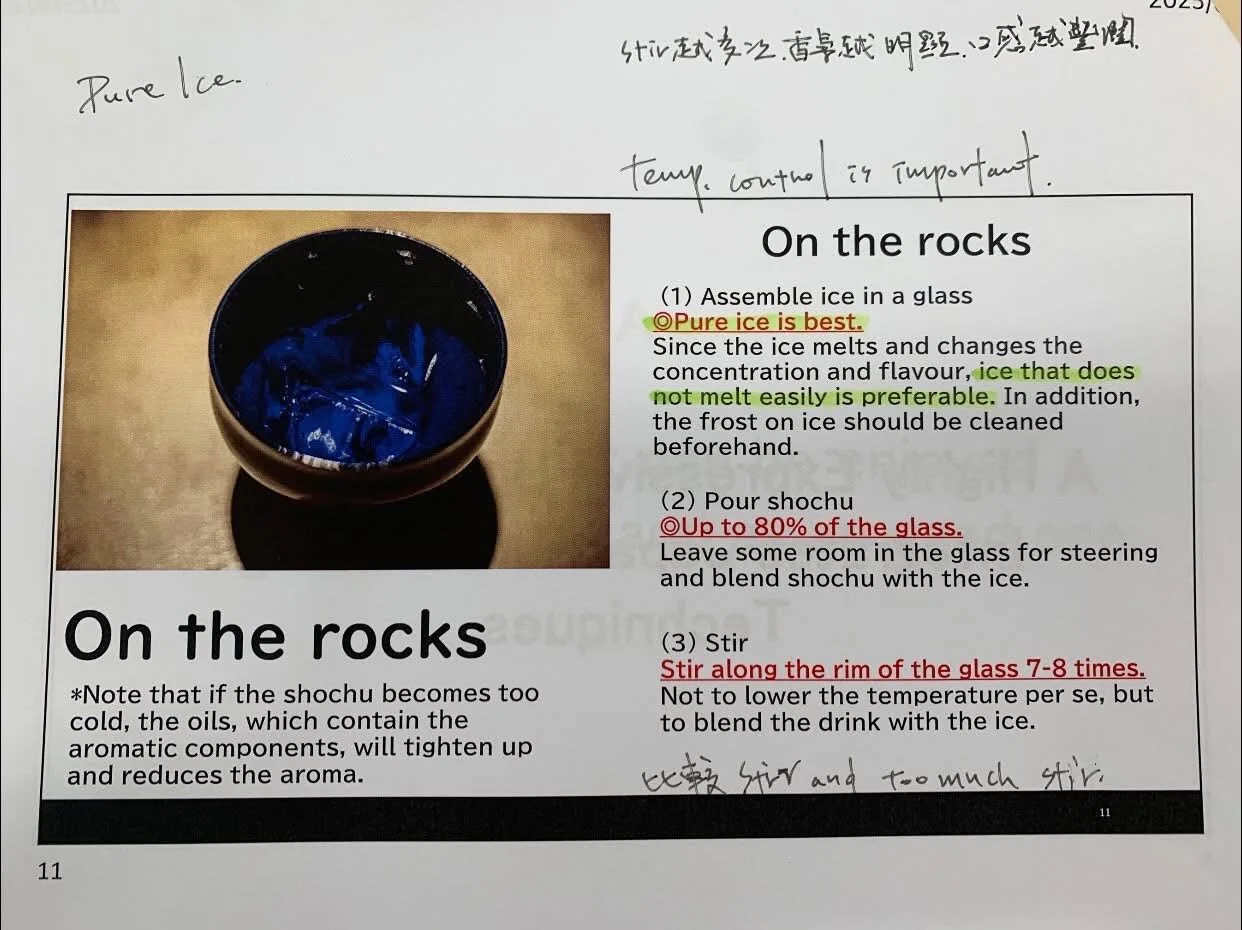 2025/
stir越多次.香氣越明顯.口感越豐潤.
Pure Ice.
temp. control is important.
On the rocks
*Note that if the shochu becomes too
cold, the oils, which contain the
aromatic components, will tighten up
and reduces the aroma.
On the rocks
(1) Assemble ice in a glass
◎Pure ice is best.
Since the ice melts and changes the
concentration and flavour, ice that does
not melt easily is preferable. In addition,
the frost on ice should be cleaned
beforehand.
(2) Pour shochu
◎Up to 80% of the glass.
Leave some room in the glass for steering
and blend shochu with the ice.
(3) Stir
Stir along the rim of the glass 7-8 times.
Not to lower the temperature per se, but
to blend the drink with the ice.
比較 stir and too much stir.
11
11